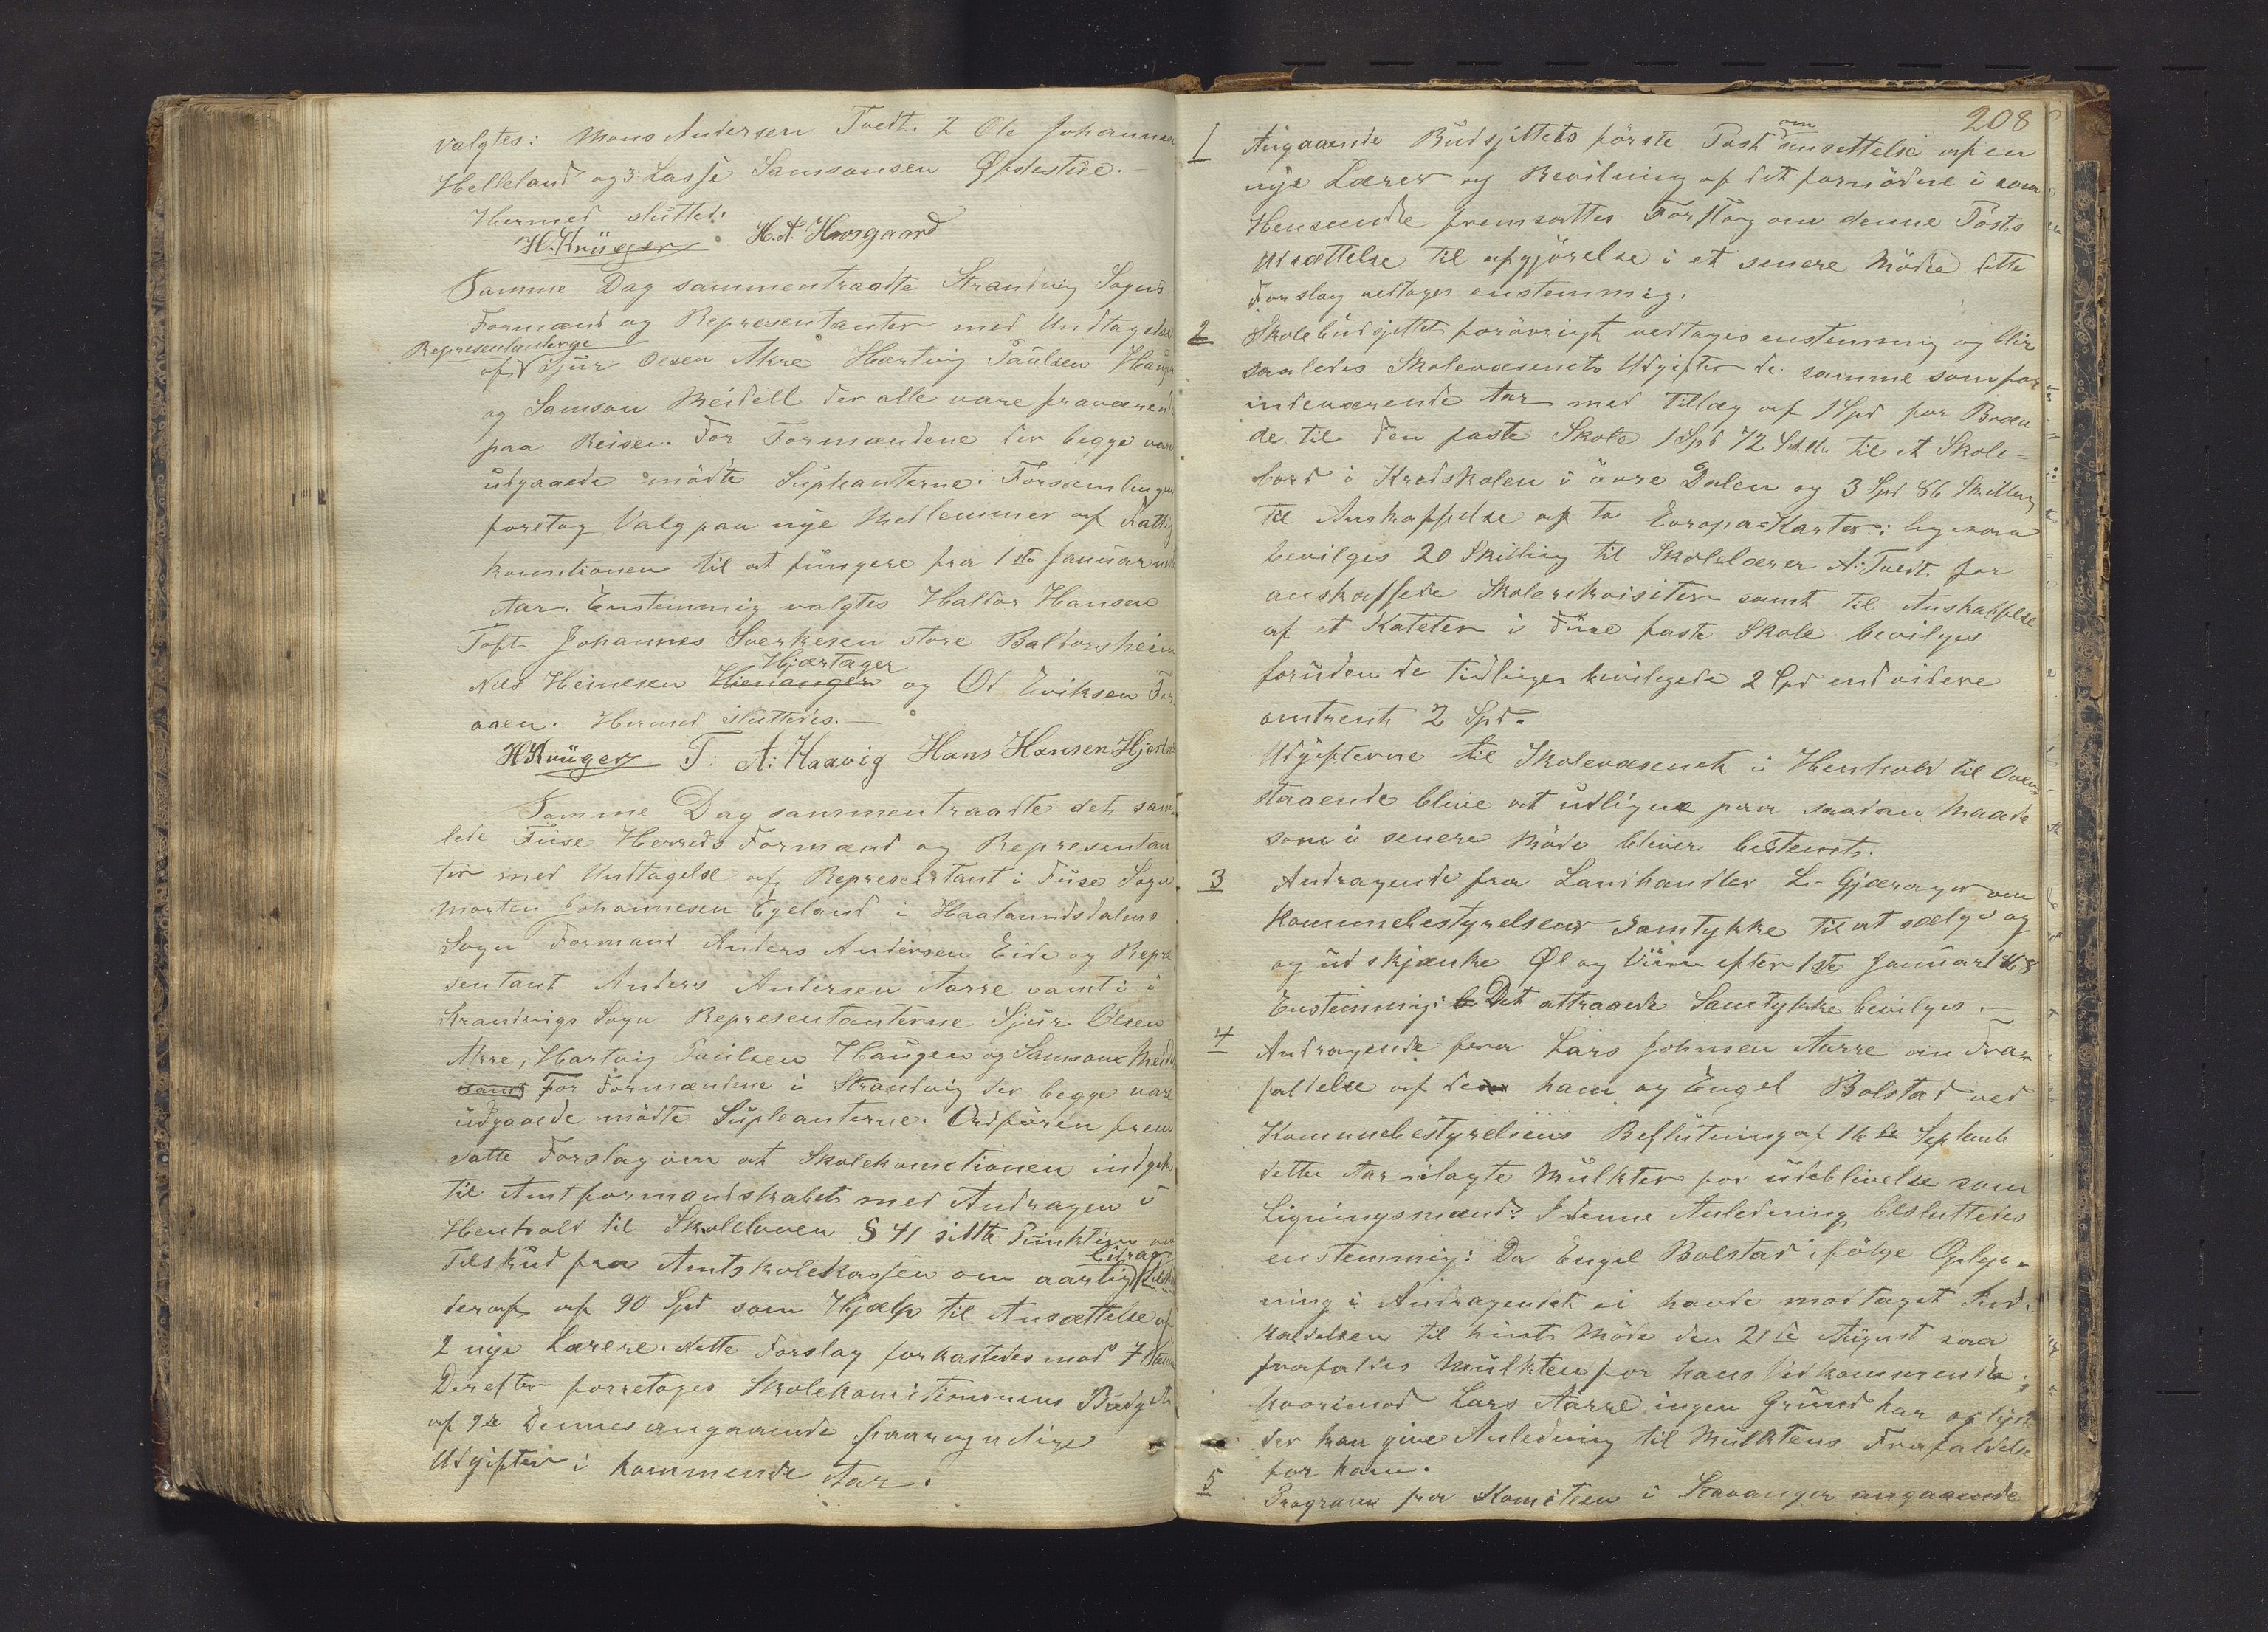 valgtes: Mons Andersen Tvedt. 2 Ole Johannes
Helleland og 3 Lasse Samsonsen Øfstestue.
Hermed sluttet.
H. Krüger H. A. Husgaard
Samme Dag sammentraadte Strandvig Sogns
Formænd og Representanter med Undtagelse
Representanterne
af Sjur Olsen Akre Hartvig Paulsen Haugen
og Samson Meidell der alle vare fraværende
paa Reiser. For Formændene der begge vare
udgaaede mödte Supleanterne. Forsamlingen
foretog Valg paa nye Medlemmer af Fattig
komitionen til at fungere fra 1ste Januar
Aar. Enstemmig valgtes Haldor Hansen
Toft Johannes Sverkesen store Baldersheim
Hjartager
Nils Heinesen Hienanger og Ol Eriksen
aaen. Hermed sluttedes.
H Krüger T: A: Haavig Hans Hansen
Samme Dag sammentraadte det sam-
lede Fuse Herreds Formænd og Representan
ter med Undtagelse af Representant i Fuse Sogn
Morten Johannesen Egeland i Haalandsdalens
Sogn Formand Anders Andersen Eide og Repre
sentant Anders Andersen Aarre samt i
Strandvigs Sogn Representanterne Sjur Olsen
Akre, Hartvig Paulsen Haugen og Samson Meidell
samt For Formændene i Strandvig der begge vare
udgaaede mödte Supleanterne. Ordfören frem
satte Forslag om at Skolekomitionen indgik
til Amtformandskabet med Andragen i
Henhold til Skoleloven § 41 sidste Punktum om
Bidrag
Tilskud fra Amtskolekassen om aarligt
deraf af 90 Spd som Hjælp til Ansættelse af
2 nye Lærere. dette Forslag forkastedes mod 7
Derefter foretoges Skolekomitionens Budget
af 9de Dennes angaaende paaregnelige
Udgifter i kommende Aar.
208
1 Angaaende Budsjettets förste Post om ansettelse af en
nye Lærer og Bevilning af det fornödne i saa
Henseende fremsattes Forslag om denne Posts
Udsættelse til afgjörelse i et senere Möde dette
Forslag vedtoges enstemmig.
2 Skolebudsjettet forövrigt vedtages enstemmig og blir
saaledes Skolevæsenets Udgifter de samme som for
indeværende Aar med Tillæg af 1 Spd for Bræn
de til den faste Skole 1 Spd 72 Skill. til et Skole=
bord i Kredskolen i övre Dalen og 3 Spd 86 Skilling
til Anskaffelse af to Europa=Karter: ligesaa
bevilges 20 Skilling til Skolelærer A: Tvedt for
anskaffede Skolerekvisiter samt til Anskaffelse
af et Kateter i Fuse faste Skole bevilges
foruden de tidligere bevilgede 2 Spd endvidere
omtrent 2 Spd.
Udgifterne til Skolevæsenet i Henhold til Oven
staaende blive at udligne paa saadan Maade
som i senere Möde bliver bestemt.
3 Andragende fra Landhandler L. Gjærager om
Kommunebestyrelsens Samtykke til at sælge og
og udskjænke Øl og Viin efter 1ste Januar 1868
Enstemmig: Det attraaede Samtykke bevilges.
4 Andragende fra Lars Johnsen Aarre om Fra
faldelse af den ham og Engel Bolstad ved
Komunebestyrelsens Beslutning af 16de Septemb
dette Aar ilagte Mulkter for udeblivelse som
Ligningsmænd. I denne Anledning besluttedes
enstemmig: Da Engel Bolstad ifölge Oplys-
ning i Andragendet ei havde modtaget Ind-
kaldelsen til hint Möde den 21de August saa
frafaldes Mulkten for hans Vedkommende
hvorimod Lars Aarre ingen Grund har oplyst
der kan give Anledning til Mulktens Frafaldelse
for ham.
5 Program fra Komiteen i Stavanger angaaende